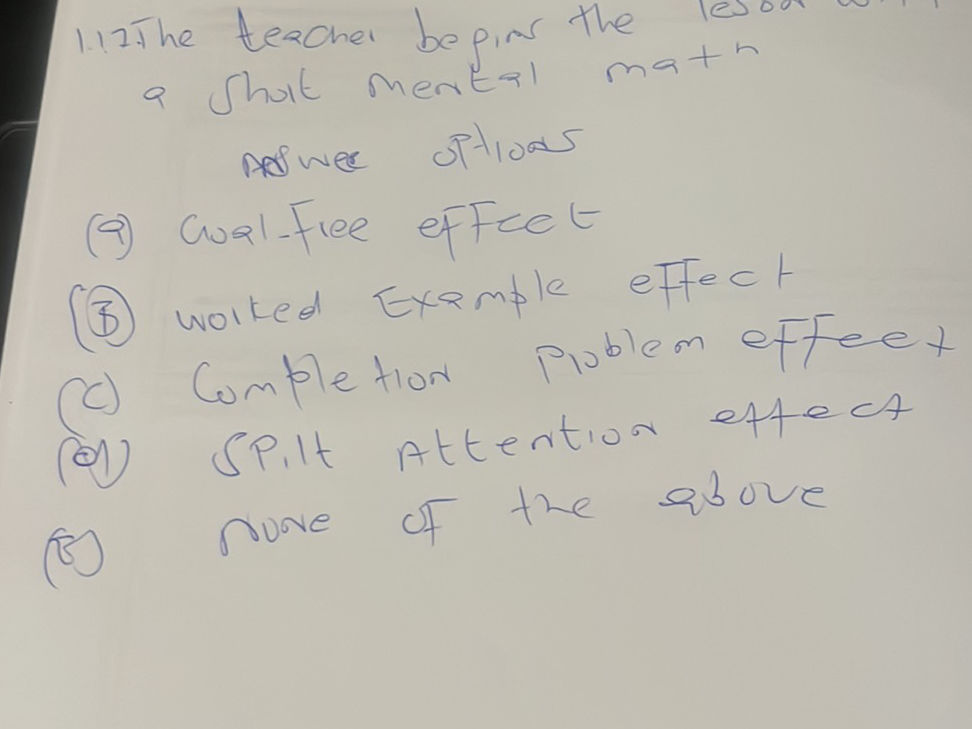 1.12. The teacher begins the lesson
a short mental math
Answer options
(a) Goal-free effect
(B) worked Example effect
(C) Completion Problem effect
(d) Split Attention effect
(E) none of the above